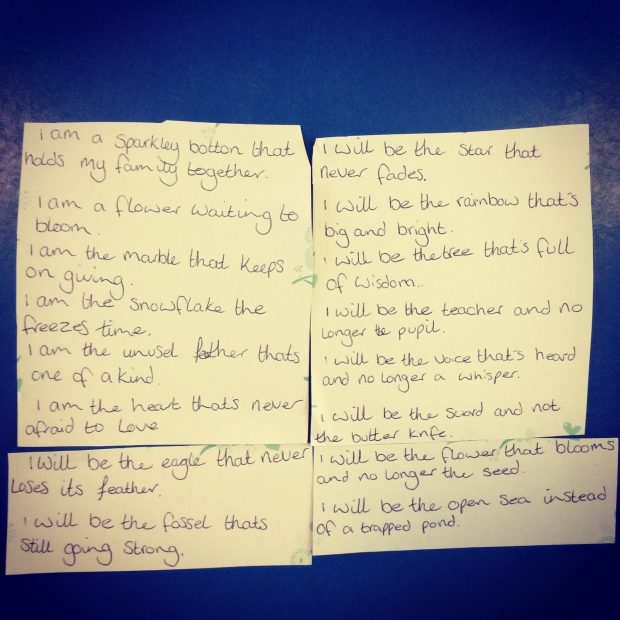 I am a sparkley botton that
holds my family together.
I am a flower waiting to
bloom.
I am the marble that keeps
on giving.
I am the snowflake the
freezes time.
I am the unusel feather thats
one of a kind.
I am the heart thats never
afraid to love
I will be the eagle that never
loses its feather.
I will be the fossel thats
still going strong.
I will be the star that
never fades.
I will be the rainbow that's
big and bright.
I will be the tree that's full
of wisdom.
I will be the teacher and no
longer pupil.
I will be the voice that's heard
and no longer a whisper.
I will be the sword and not
the butter knfe.
I will be the flower that blooms
and no longer the seed.
I will be the open sea instead
of a trapped pond.